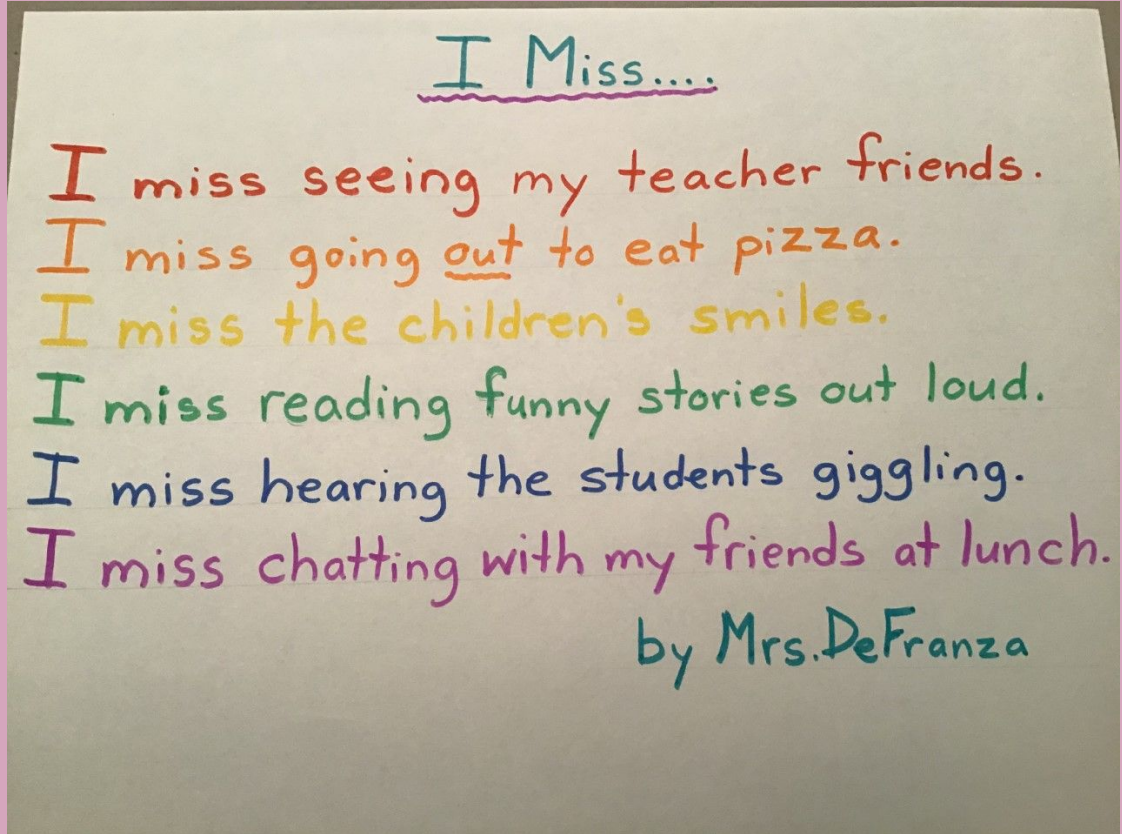 I Miss....
I miss seeing my teacher friends.
I miss going out to eat pizza.
I miss the children's smiles.
I miss reading funny stories out loud.
I miss hearing the students giggling.
I miss chatting with my friends at lunch.
by Mrs. DeFranza